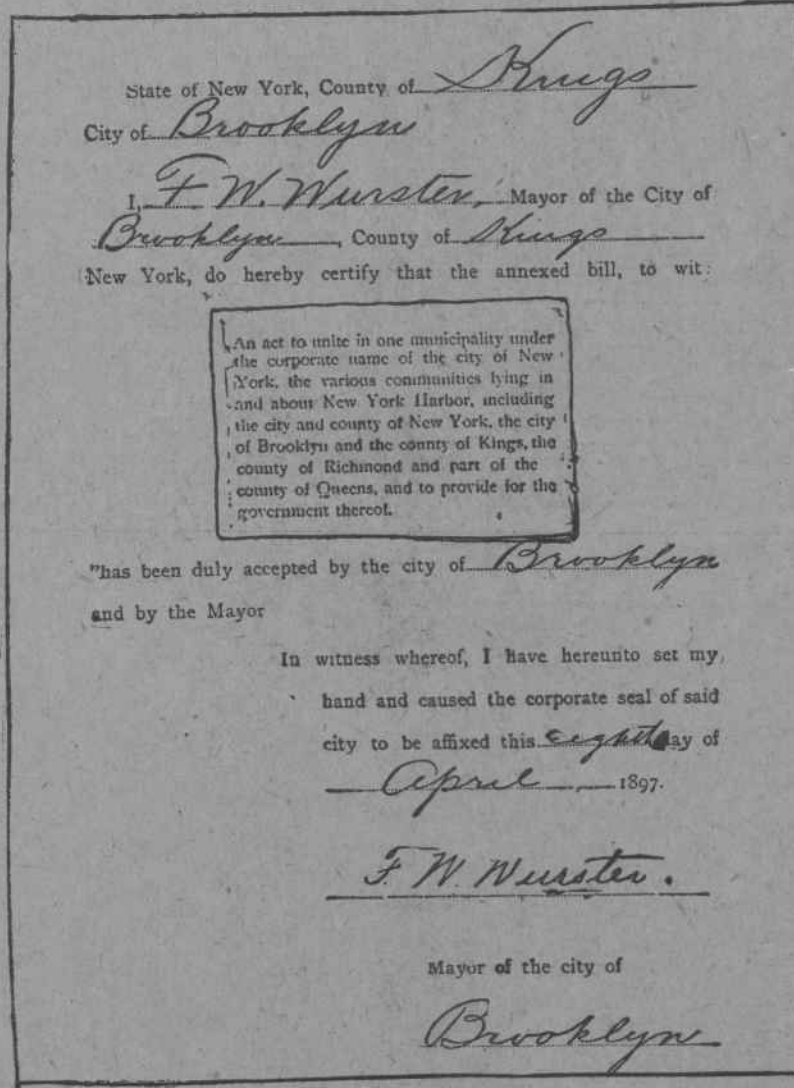 State of New York, County of Kings
City of Brooklyn
I, F. W. Wurster, Mayor of the City of
Brooklyn, County of Kings
New York, do hereby certify that the annexed bill, to wit:
An act to unite in one municipality under
the corporate name of the city of New
York, the various communities lying in
and about New York Harbor, including
the city and county of New York, the city
of Brooklyn and the county of Kings, the
county of Richmond and part of the
county of Queens, and to provide for the
government thereof.
"has been duly accepted by the city of Brooklyn
and by the Mayor
In witness whereof, I have hereunto set my
hand and caused the corporate seal of said
city to be affixed this eighth day of
April 1897.
F. W. Wurster.
Mayor of the city of
Brooklyn